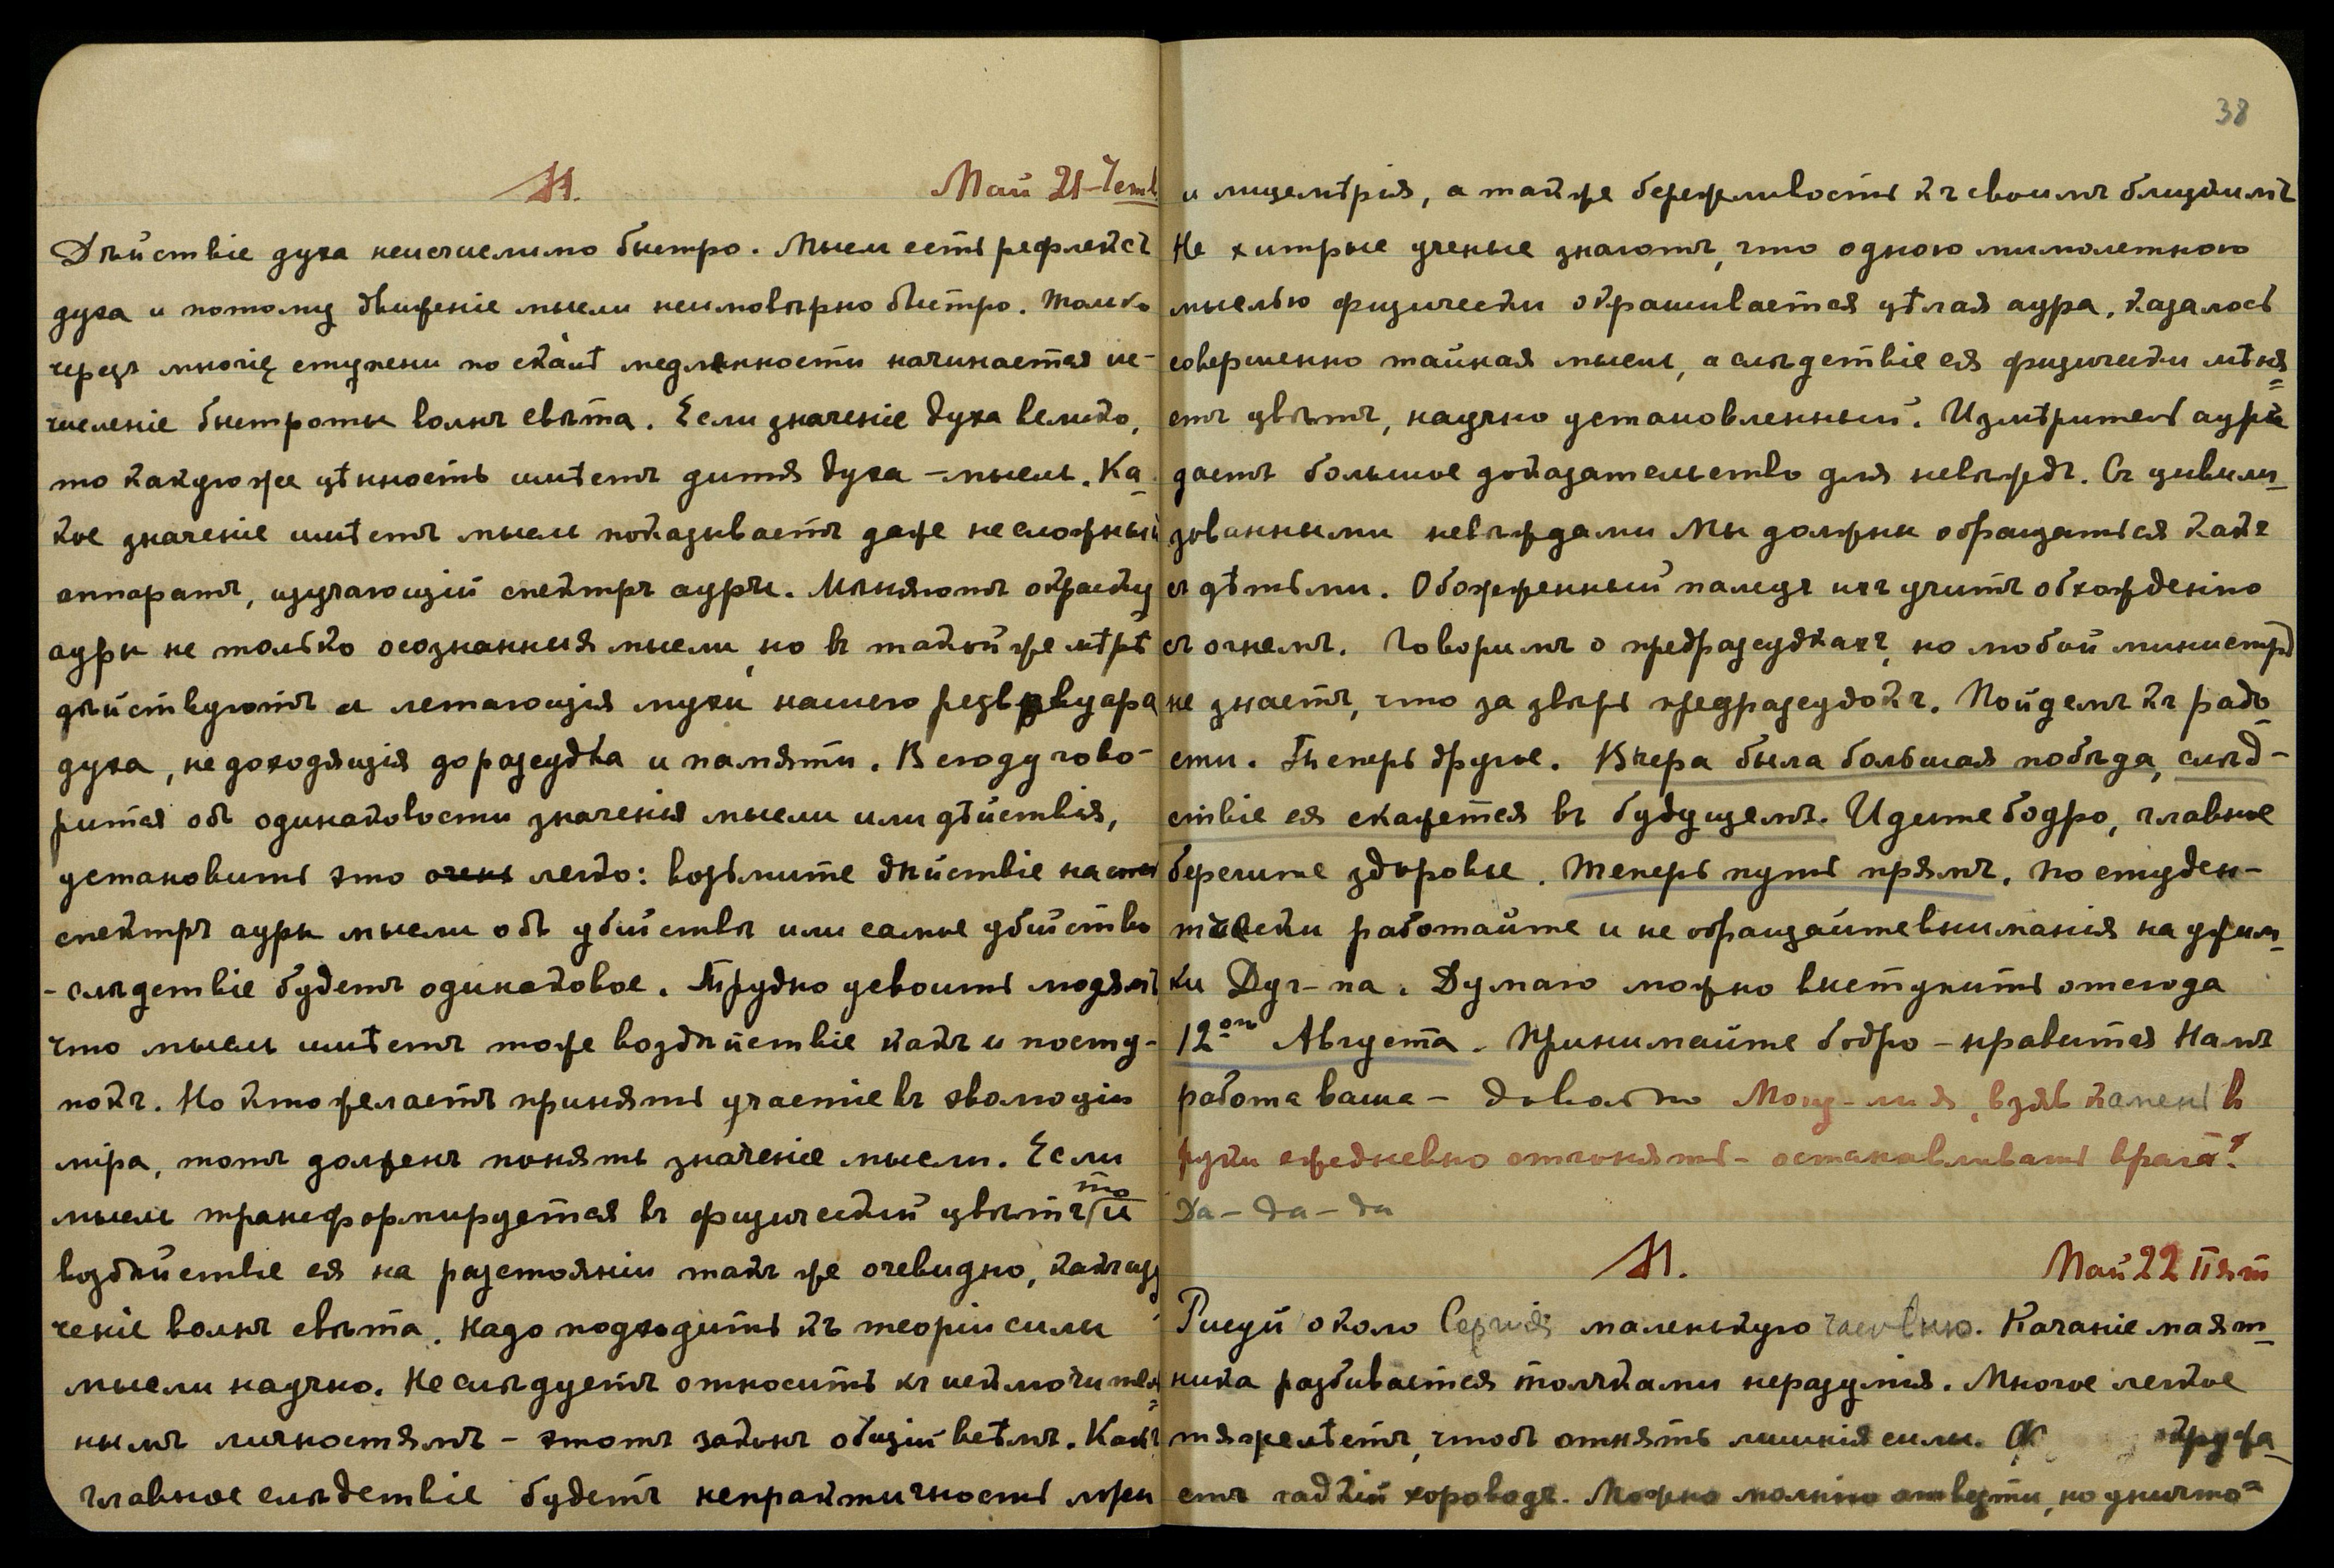 М. Май 21 – Четв
Дѣйствіе духа неисчислимо быстро. Мысль есть рефлексъ
духа и потому движеніе мысли неимовѣрно быстро. Только
черезъ многіе ступени по скалѣ медленности начинается ис-
численіе быстроты волнъ свѣта. Если значеніе духа велико,
то какую же цѣнность имѣетъ дитя духа – мысль. Ка-
кое значеніе имѣетъ мысль показываетъ даже несложный
аппаратъ, изучающій спектръ ауры. Мѣняютъ окраску
ауры не только осознанныя мысли, но въ такой же мѣрѣ
дѣйствуютъ и летающія мухи нашего резервуара
духа, не доходящія до разсудка и памяти. Всюду гово-
рится объ одинаковости значенія мысли или дѣйствія,
установить это очень легко: возьмите дѣйствіе на
спектръ ауры мысли объ убійствѣ или самое убійство
- слѣдствіе будетъ одинаковое. Трудно усвоить людямъ
что мысль имѣетъ тоже воздѣйствіе какъ и посту-
покъ. Но кто желаетъ принять участіе въ эволюціи
міра, тотъ долженъ понять значеніе мысли. Если
мысль трансформируется въ физическій цвѣтъ, то и
воздѣйствіе ея на разстояніи такъ же очевидно, какъ изу
ченіе волнъ свѣта. Надо подходить къ теоріи силы
мысли научно. Не слѣдуетъ относить къ исключитель
нымъ личностямъ – этотъ законъ общій всѣмъ. Какъ
главное слѣдствіе будетъ непрактичность лжи
38
и лицемѣрія, а также бережливость къ своимъ ближнимъ
Не хитрые ученые знаютъ, что одною мимолетною
мыслью физически окрашивается цѣлая аура, казалось
совершенно тайная мысль, а слѣдствіе ея физически мѣня
етъ цвѣтъ, научно установленный. Измѣритель ауры
даетъ большое доказательство для невѣждъ. Съ цивили-
зованными невѣждами Мы должны обращаться какъ
съ дѣтьми. Обожженный палецъ ихъ учитъ обхожденію
съ огнемъ. Говоримъ о предразсудкахъ, но любой министръ
не знаетъ, что за звѣрь предразсудокъ. Пойдемъ къ радо
сти. Теперь другое. Вчера была большая побѣда, слѣд-
ствіе ея скажется въ будущемъ. Идите бодро, главное
берегите здоровье. Теперь путь прямъ. По студен-
чески работайте и не обращайте вниманія на ужим-
ки Дуг-па. Думаю можно выступить отсюда
12ого Августа. Принимайте бодро – нравится Намъ
работа ваша – довольно взявъ камень въ
руки ежедневно отгонять – останавливать врага?
Да – да – да
М. Май 22 Пят
Рисуй около Сергія маленькую часовню. Качаніе маят-
ника разбивается толчками неразумія. Многое легкое
тяжелѣетъ, чтобъ отнять лишнія силы. окружа-
етъ гадкій хороводъ. Можно молнію отвести, но уничто-